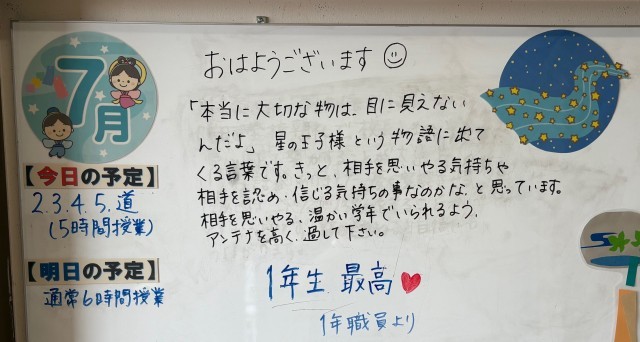 7月
おはようございます
「本当に大切な物は、目に見えない
んだよ」 星の王子様 という 物語に出て
くる言葉です。きっと、相手を思いやる気持ちや
相手を認め・信じる気持ちの事なのかな、と 思っています。
相手を思いやる、温かい学年でいられるよう、
アンテナを高く、過して下さい。
1年生 最高
1年職員より
【今日の予定】
2.3.4.5.道
(5時間授業)
【明日の予定】
通常6時間授業